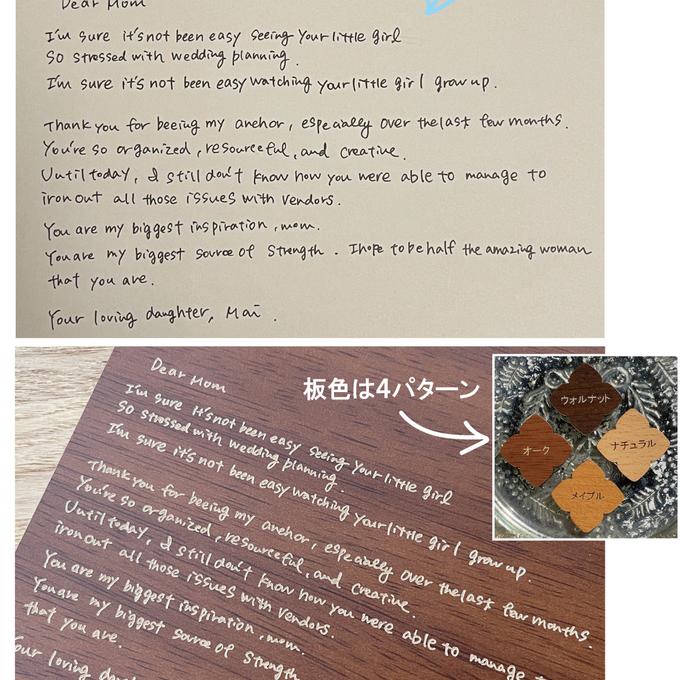 Dear Mom
I'm sure it's not been easy seeing your little girl
so stressed with wedding planning.
I'm sure it's not been easy watching your little girl grow up.
Thank you for beeing my anchor, especially over the last few months.
You're so organized, resourceful, and creative.
Until today, I still don't know how you were able to manage to
iron out all those issues with vendors.
You are my biggest inspiration, mom.
You are my biggest source of strength. I hope to be half the amazing woman
that you are.
Your loving daughter, Mai.
板色は4パターン
ウォルナット
オーク
ナチュラル
メイプル
Dear Mom
I'm sure it's not been easy seeing your little girl
so stressed with wedding planning.
I'm sure it's not been easy watching your little girl grow up.
Thank you for beeing my anchor, especially over the last few months.
You're so organized, resourceful, and creative.
Until today, I still don't know how you were able to manage t
iron out all those issues with vendors.
You are my biggest inspiration, mom.
You are my biggest source of strength
that you are.
our loving daug